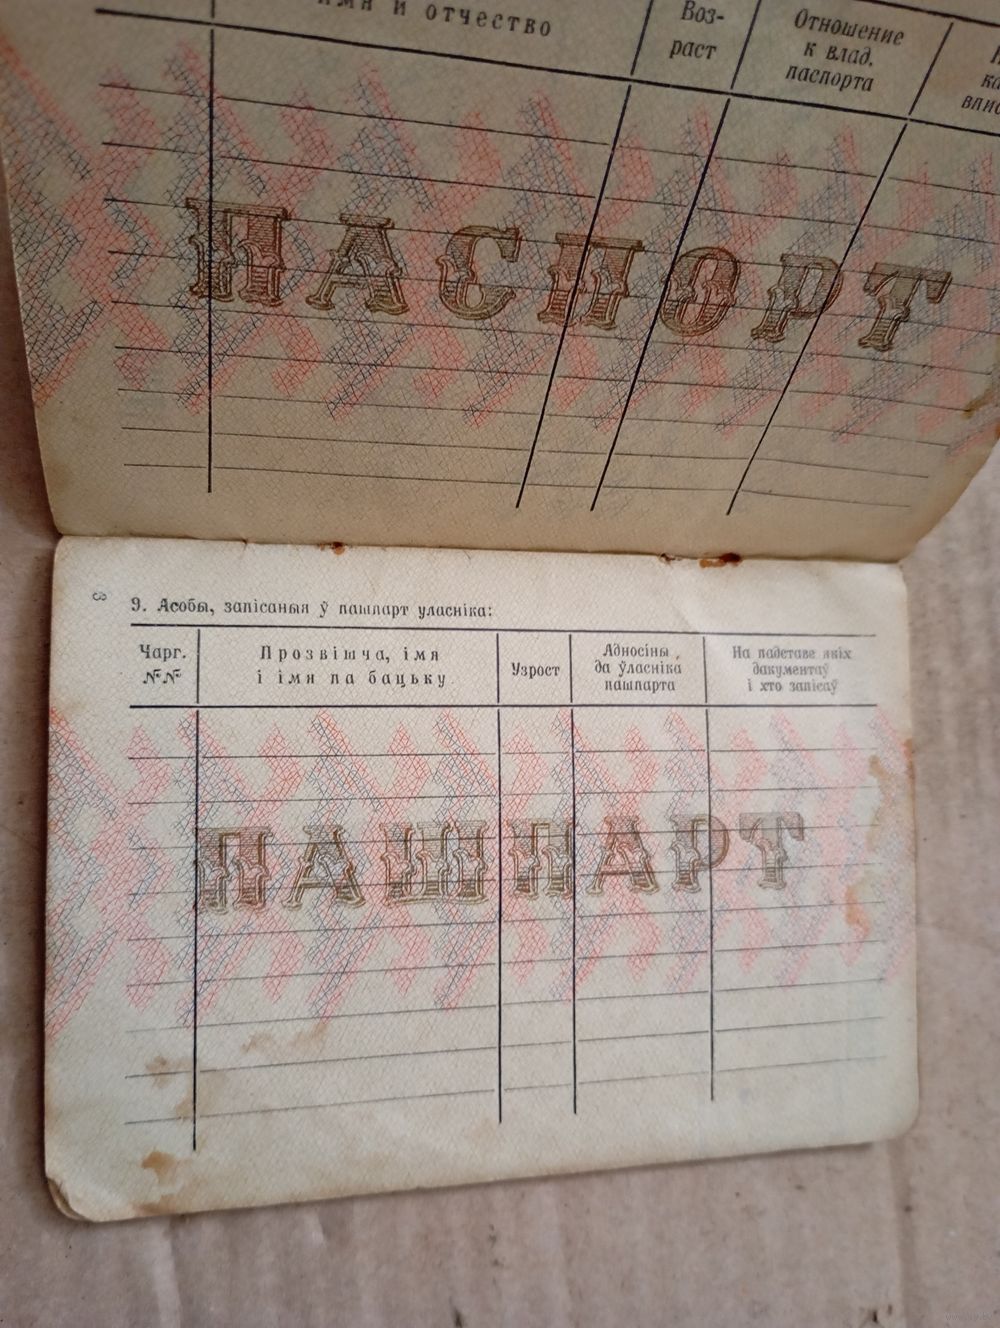 имя и отчество
Воз-
раст
Отношение
к влад.
паспорта
ПАСПОРТ
3
9. Асобы, запісаныя ў пашпарт уласніка:
Чарг.
№№
Прозвішча, імя
і імя па бацьку
Узрост
Адносіны
да ўласніка
пашпарта
На падставе якіх
дакументаў
і хто запісаў
ПАШПАРТ